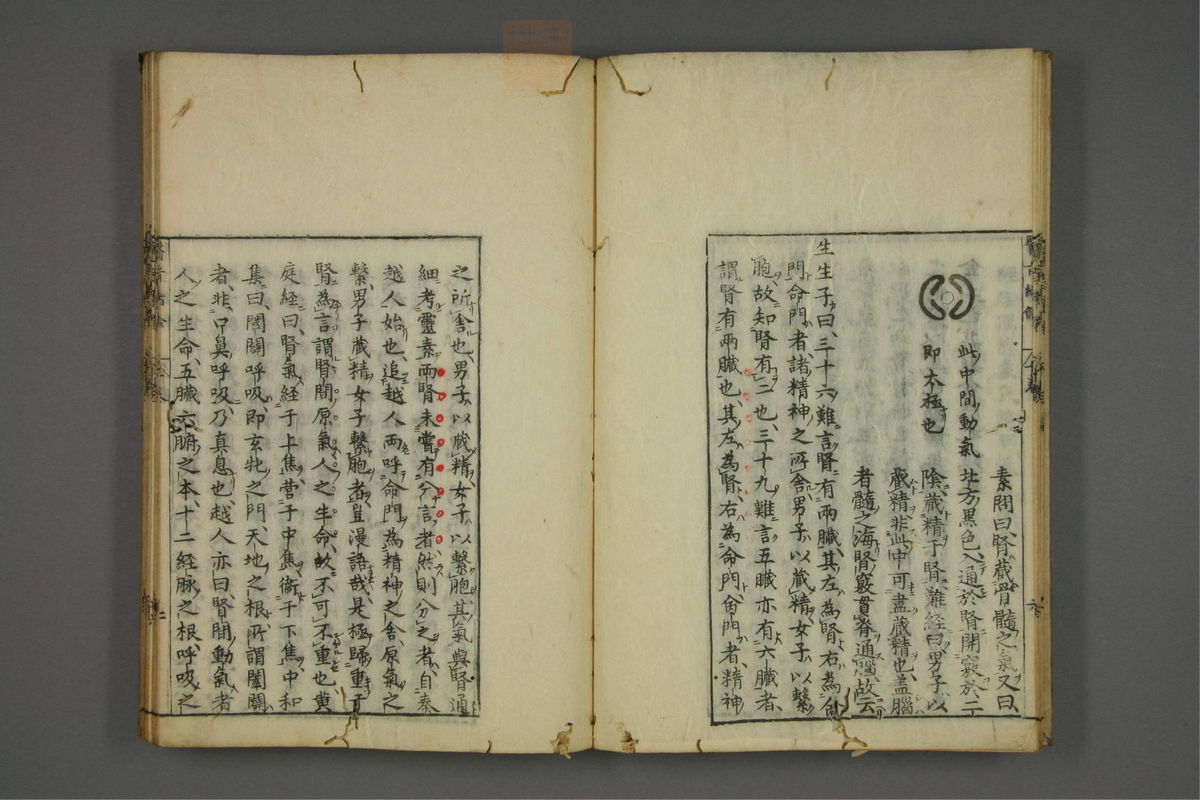 素問曰、腎藏骨髓之氣又曰、
北方黑色、入通於腎開竅於二
陰、藏精于腎、難經曰、男子以
藏精非此中可盡藏精也、蓋腦
者髓之海腎竅貫脊通腦、故云
此中間動氣
即太極也
生生子曰、三十六難言腎有兩臟、其左為腎、右為命
門、命門者、諸精神之所舍、男子以藏精女子以繫
胞、故知腎有二也、三十九難言五臟亦有六臟者、
謂腎有兩臟也、其左為腎、右為命門、命門者、精神
之所舍也、男子以藏精、女子以繫胞、其氣與腎通
細考靈素兩腎未嘗有分言者、然則分之者、自秦
越人始也、追越人兩呼命門為精神之舍、原氣之
繫、男子藏精女子繫胞者、豈漫語哉、是極歸重于
腎為言、謂腎間原氣人之生命、故不可不重也黃
庭經曰、腎氣經于上焦、營于中焦、衞于下焦、中和
集曰、闔闢呼吸、即玄牝之門、天地之根、所謂闔闢
者、非口鼻呼吸、乃真息也越人亦曰、腎間動氣者
人之生命、五臟六腑之本、十二經脉之根、呼吸之